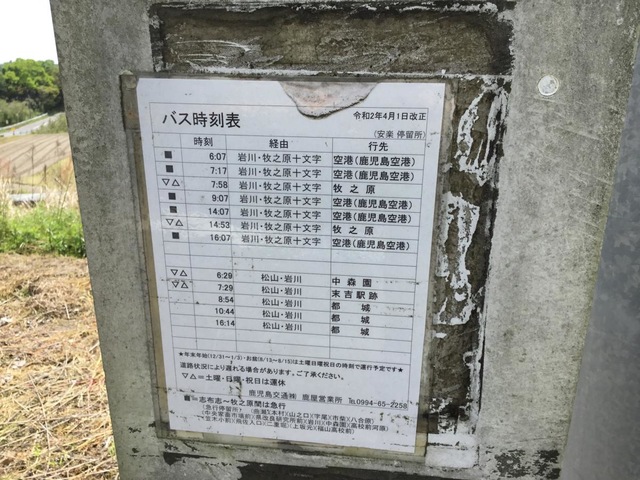 バス時刻表
令和2年4月1日改正
(安楽 停留所)
時刻 経由 行先
■ 6:07 岩川・牧之原十文字 空港(鹿児島空港)
■ 7:17 岩川・牧之原十文字 空港(鹿児島空港)
▽△ 7:58 岩川・牧之原十文字 牧之原
■ 9:07 岩川・牧之原十文字 空港(鹿児島空港)
■ 14:07 岩川・牧之原十文字 空港(鹿児島空港)
▽△ 14:53 岩川・牧之原十文字 牧之原
■ 16:07 岩川・牧之原十文字 空港(鹿児島空港)
▽△ 6:29 松山・岩川 中森園
▽△ 7:29 松山・岩川 末吉駅跡
8:54 松山・岩川 都城
10:44 松山・岩川 都城
16:14 松山・岩川 都城
★年末年始(12/31~1/3)・お盆(8/13~8/15)は土曜日曜祝日の時刻で運行予定です★
道路状況により遅れる場合があります。ご了承ください。
▽△=土曜・日曜・祝日は運休
鹿児島交通㈱ 鹿屋営業所 ℡0994-65-2258
■=志布志~牧之原間は急行
(急行停留所)